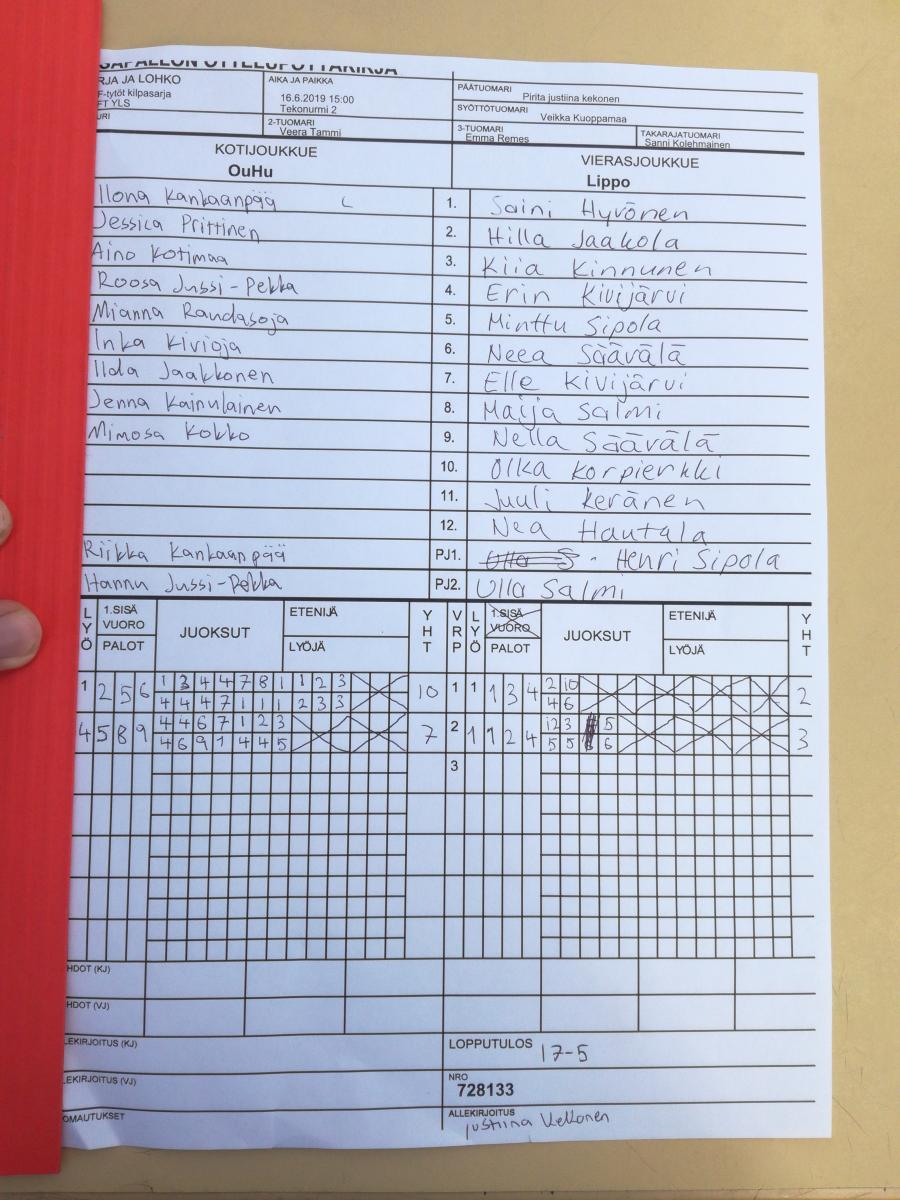 RJA JA LOHKO
F-tytöt kilpasarja
FT YLS
AIKA JA PAIKKA
16.6.2019 15:00
Tekonurmi 2
PÄÄTUOMARI
Pirita justiina kekonen
SYÖTTÖTUOMARI
Veikka Kuoppamaa
2-TUOMARI
Veera Tammi
3-TUOMARI
Emma Remes
TAKARAJATUOMARI
Sanni Kolehmainen
KOTIJOUKKUE
OuHu
VIERASJOUKKUE
Lippo
Ilona Kankaanpää C 1. Saini Hyvönen
Jessica Prittinen 2. Hilla Jaakola
Aino Kotimaa 3. Kiia Kinnunen
Roosa Jussi-Pekka 4. Erin Kivijärvi
Mianna Randasoja 5. Minttu Sipola
Inka Kivioja 6. Neea Säävälä
Ilda Jaakkonen 7. Elle Kivijärvi
Jenna Kainulainen 8. Maija Salmi
Mimosa Kokko 9. Nella Säävälä
10. Olka Korpierkki
11. Juuli Keränen
12. Nea Hautala
Riikka Kankaanpää PJ1. Henri Sipola
Hannu Jussi-Pekka PJ2. Ulla Salmi
LYÖ 1.SISÄ VUORO PALOT JUOKSUT ETENIJÄ LYÖJÄ YHT VRP LYÖ 1.SISÄ VUORO PALOT JUOKSUT ETENIJÄ LYÖJÄ YHT
1 2 5 6 1 3 4 4 7 8 1 1 2 3 10 1 1 1 3 4 2 10 2
4 4 4 7 1 1 1 2 3 3 4 6
4 5 8 9 4 4 6 7 1 2 3 7 2 1 1 2 4 12 3 5 3
4 6 9 1 4 4 5 5 5 6
3
HDOT (KJ)
HDOT (VJ)
LEKIRJOITUS (KJ)
LOPPUTULOS 17-5
LEKIRJOITUS (VJ)
NRO
728133
OMAUTUKSET
ALLEKIRJOITUS
Justiina Kekonen